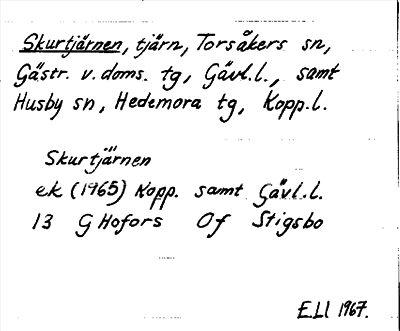 Skurtjärnen, tjärn, Torsåkers sn,
Gästr. v. doms. tg, Gävl.l., samt
Husby sn, Hedemora tg, Kopp.l.
Skurtjärnen
ek (1965) Kopp. samt Gävl.l.
13 G Hofors Of Stigsbo
E.Ll 1967.